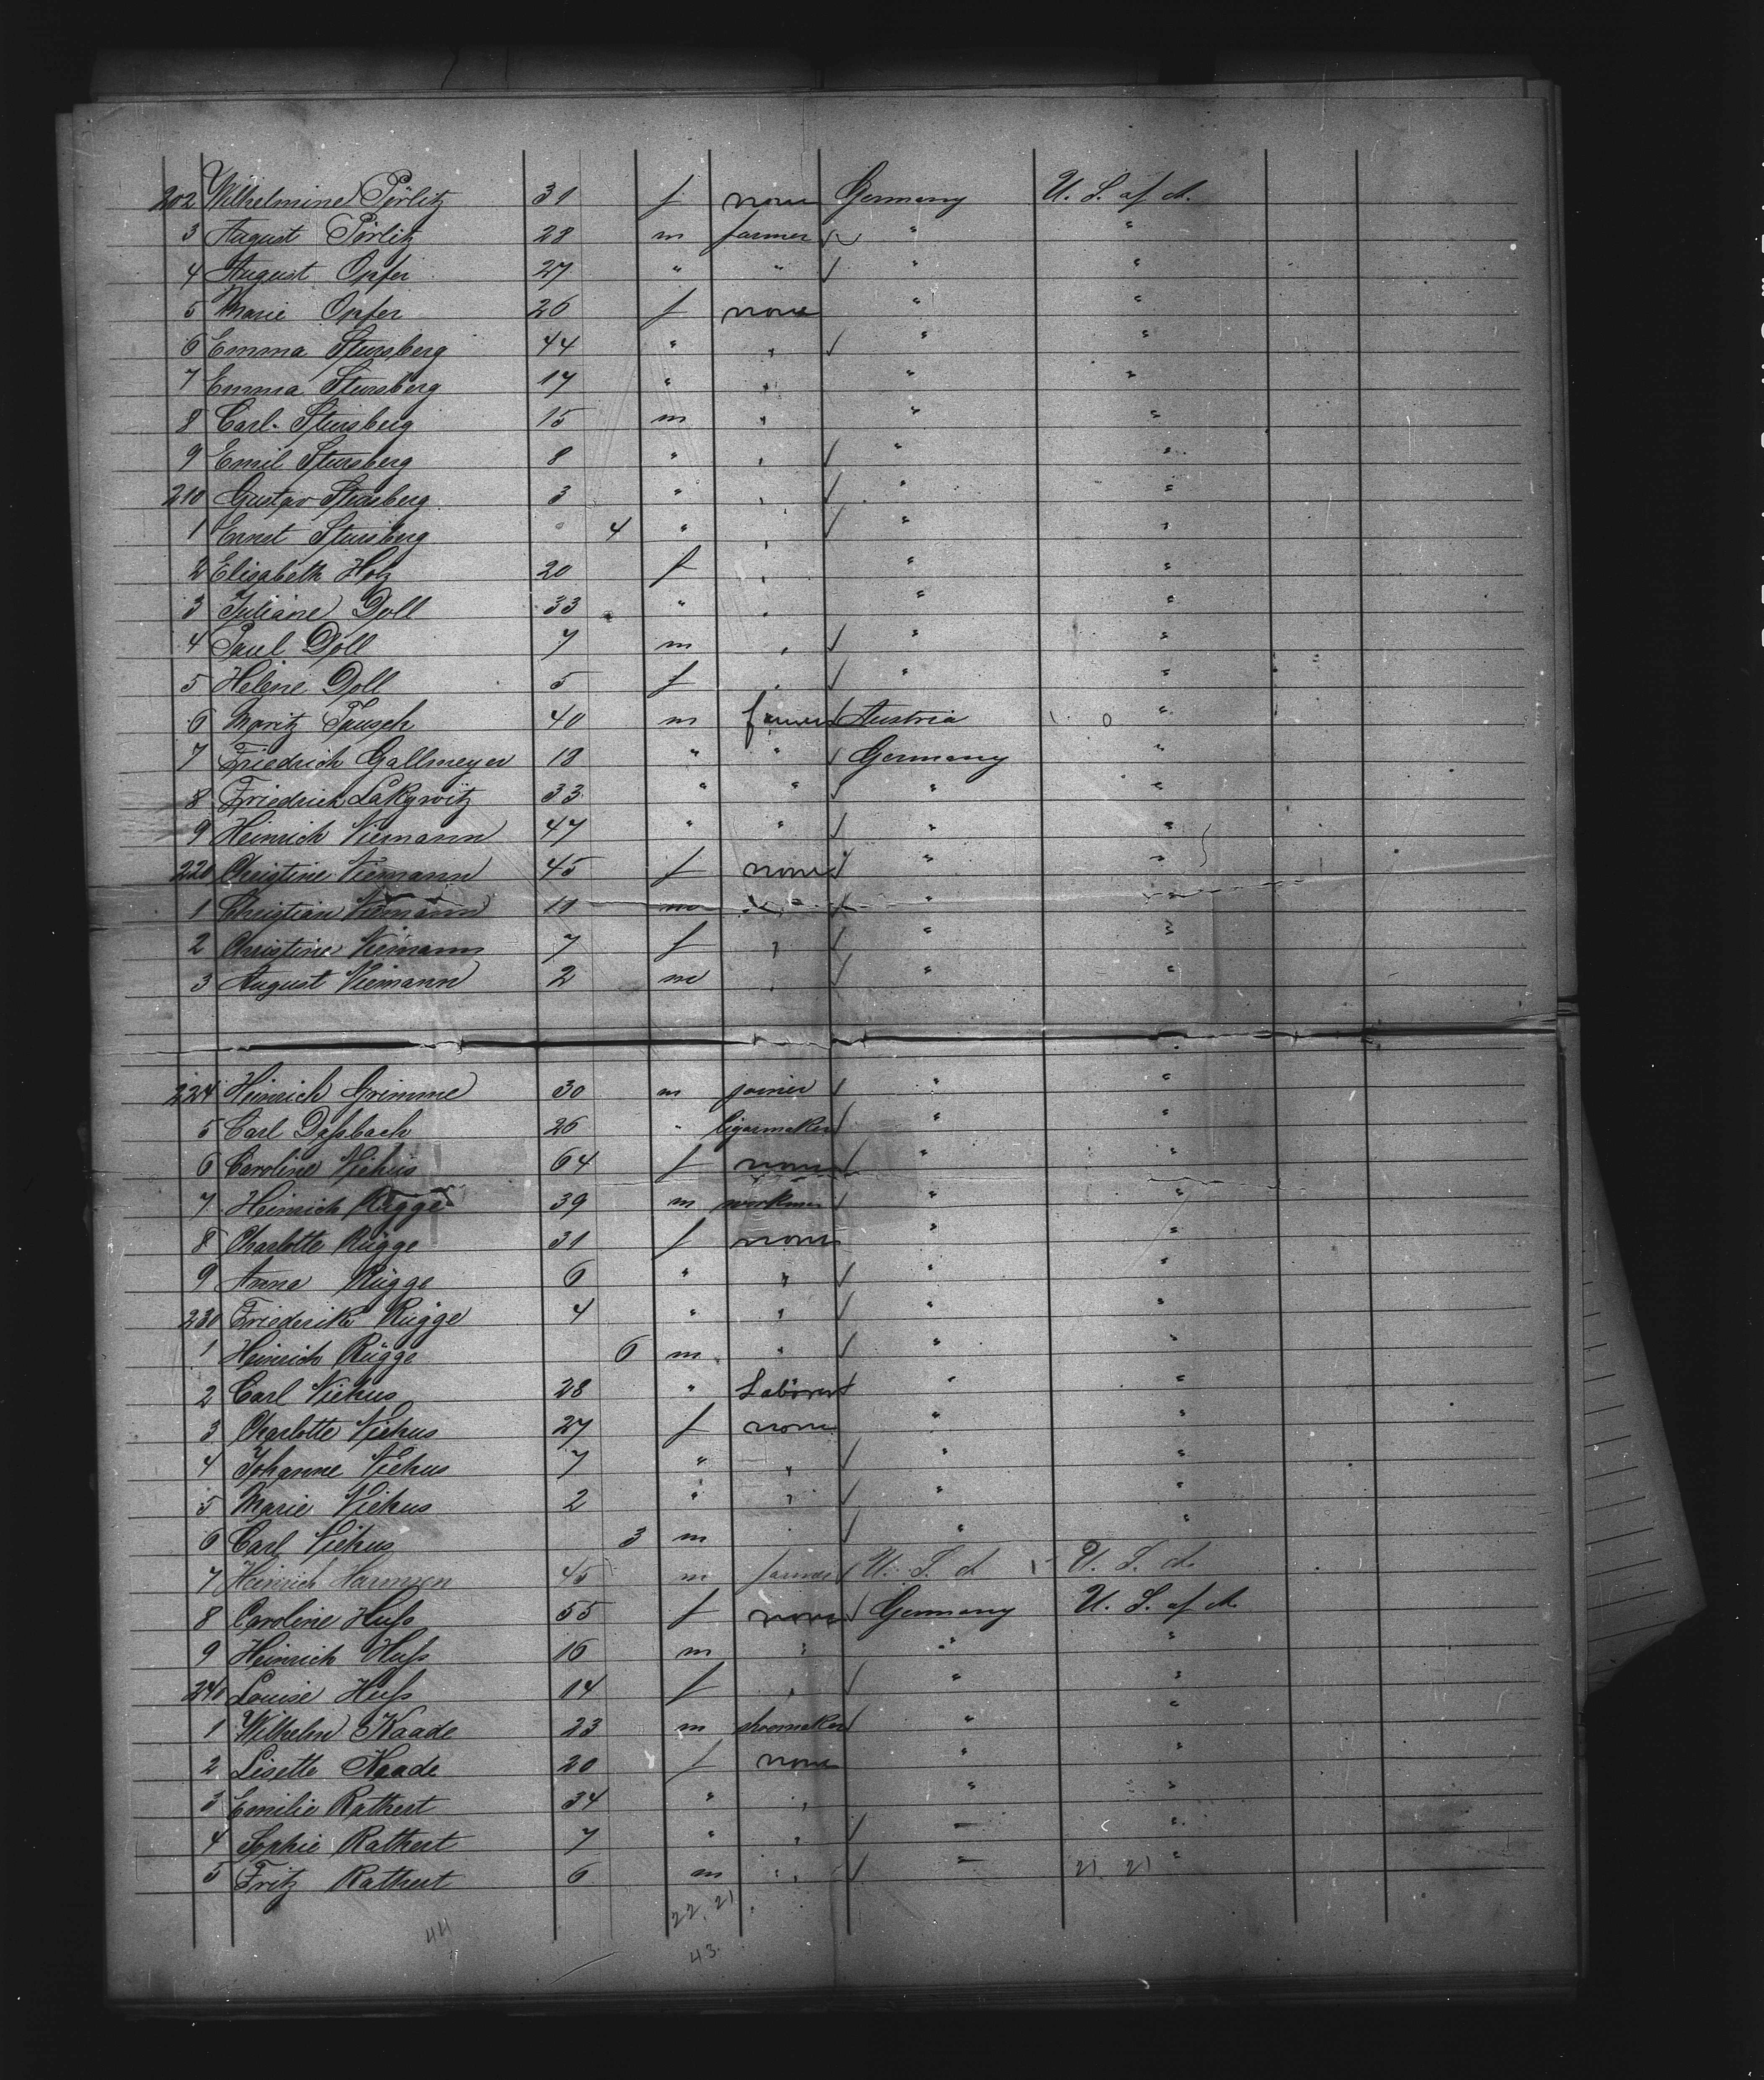 202 Wilhelmine Pörlitz 31 f none Germany U. S. of A.
3 August Pörlitz 28 m farmer " "
4 August Opfer 27 " " " "
5 Marie Opfer 26 f none " "
6 Emma Stursberg 44 " " " "
7 Emma Stursberg 17 " " " "
8 Carl Stursberg 15 m " " "
9 Emil Stursberg 8 " " " "
210 Gustav Stursberg 3 " " " "
1 Ernst Stursberg 4 " " " "
2 Elisabeth Holz 20 f " " "
3 Juliane Doll 33 " " " "
4 Paul Doll 7 m " " "
5 Helene Doll 5 f " " "
6 Moritz Tausch 40 m farmer Austria "
7 Friedrich Gallmeyer 18 " " Germany "
8 Friedrich 33 " " " "
9 Heinrich Niemann 47 " " " "
220 Christine Niemann 45 f none " "
1 Christian Niemann 11 m " " "
2 Christine Niemann 7 f " " "
3 August Niemann 2 m " " "
224 Heinrich Grimme 30 m joiner " "
5 Carl Daßbach 26 " Cigarmaker " "
6 Caroline Niehus 64 f none " "
7 Heinrich Rügge 39 m workman " "
8 Charlotte Rügge 31 f none " "
9 Anna Rügge 6 " " " "
230 Friederike Rügge 4 " " " "
1 Heinrich Rügge 6 m " " "
2 Carl Niehus 28 " Laborer " "
3 Charlotte Niehus 27 f none " "
4 Johanne Niehus 7 " " " "
5 Marie Niehus 2 " " " "
6 Carl Niehus 3 m " " "
7 Heinrich Harmsen 45 m farmer U. S. A U. S. A.
8 Caroline Huß 55 f none Germany U. S. of A
9 Heinrich Huß 16 m " " "
240 Louise Huß 14 f " " "
1 Wilhelm Kaade 23 m shoemaker " "
2 Lisette Kaade 20 f none " "
3 Emilie Rathert 34 " " " "
4 Sophie Rathert 7 " " " "
5 Fritz Rathert 6 m " " " 21 21
22, 21
44
43